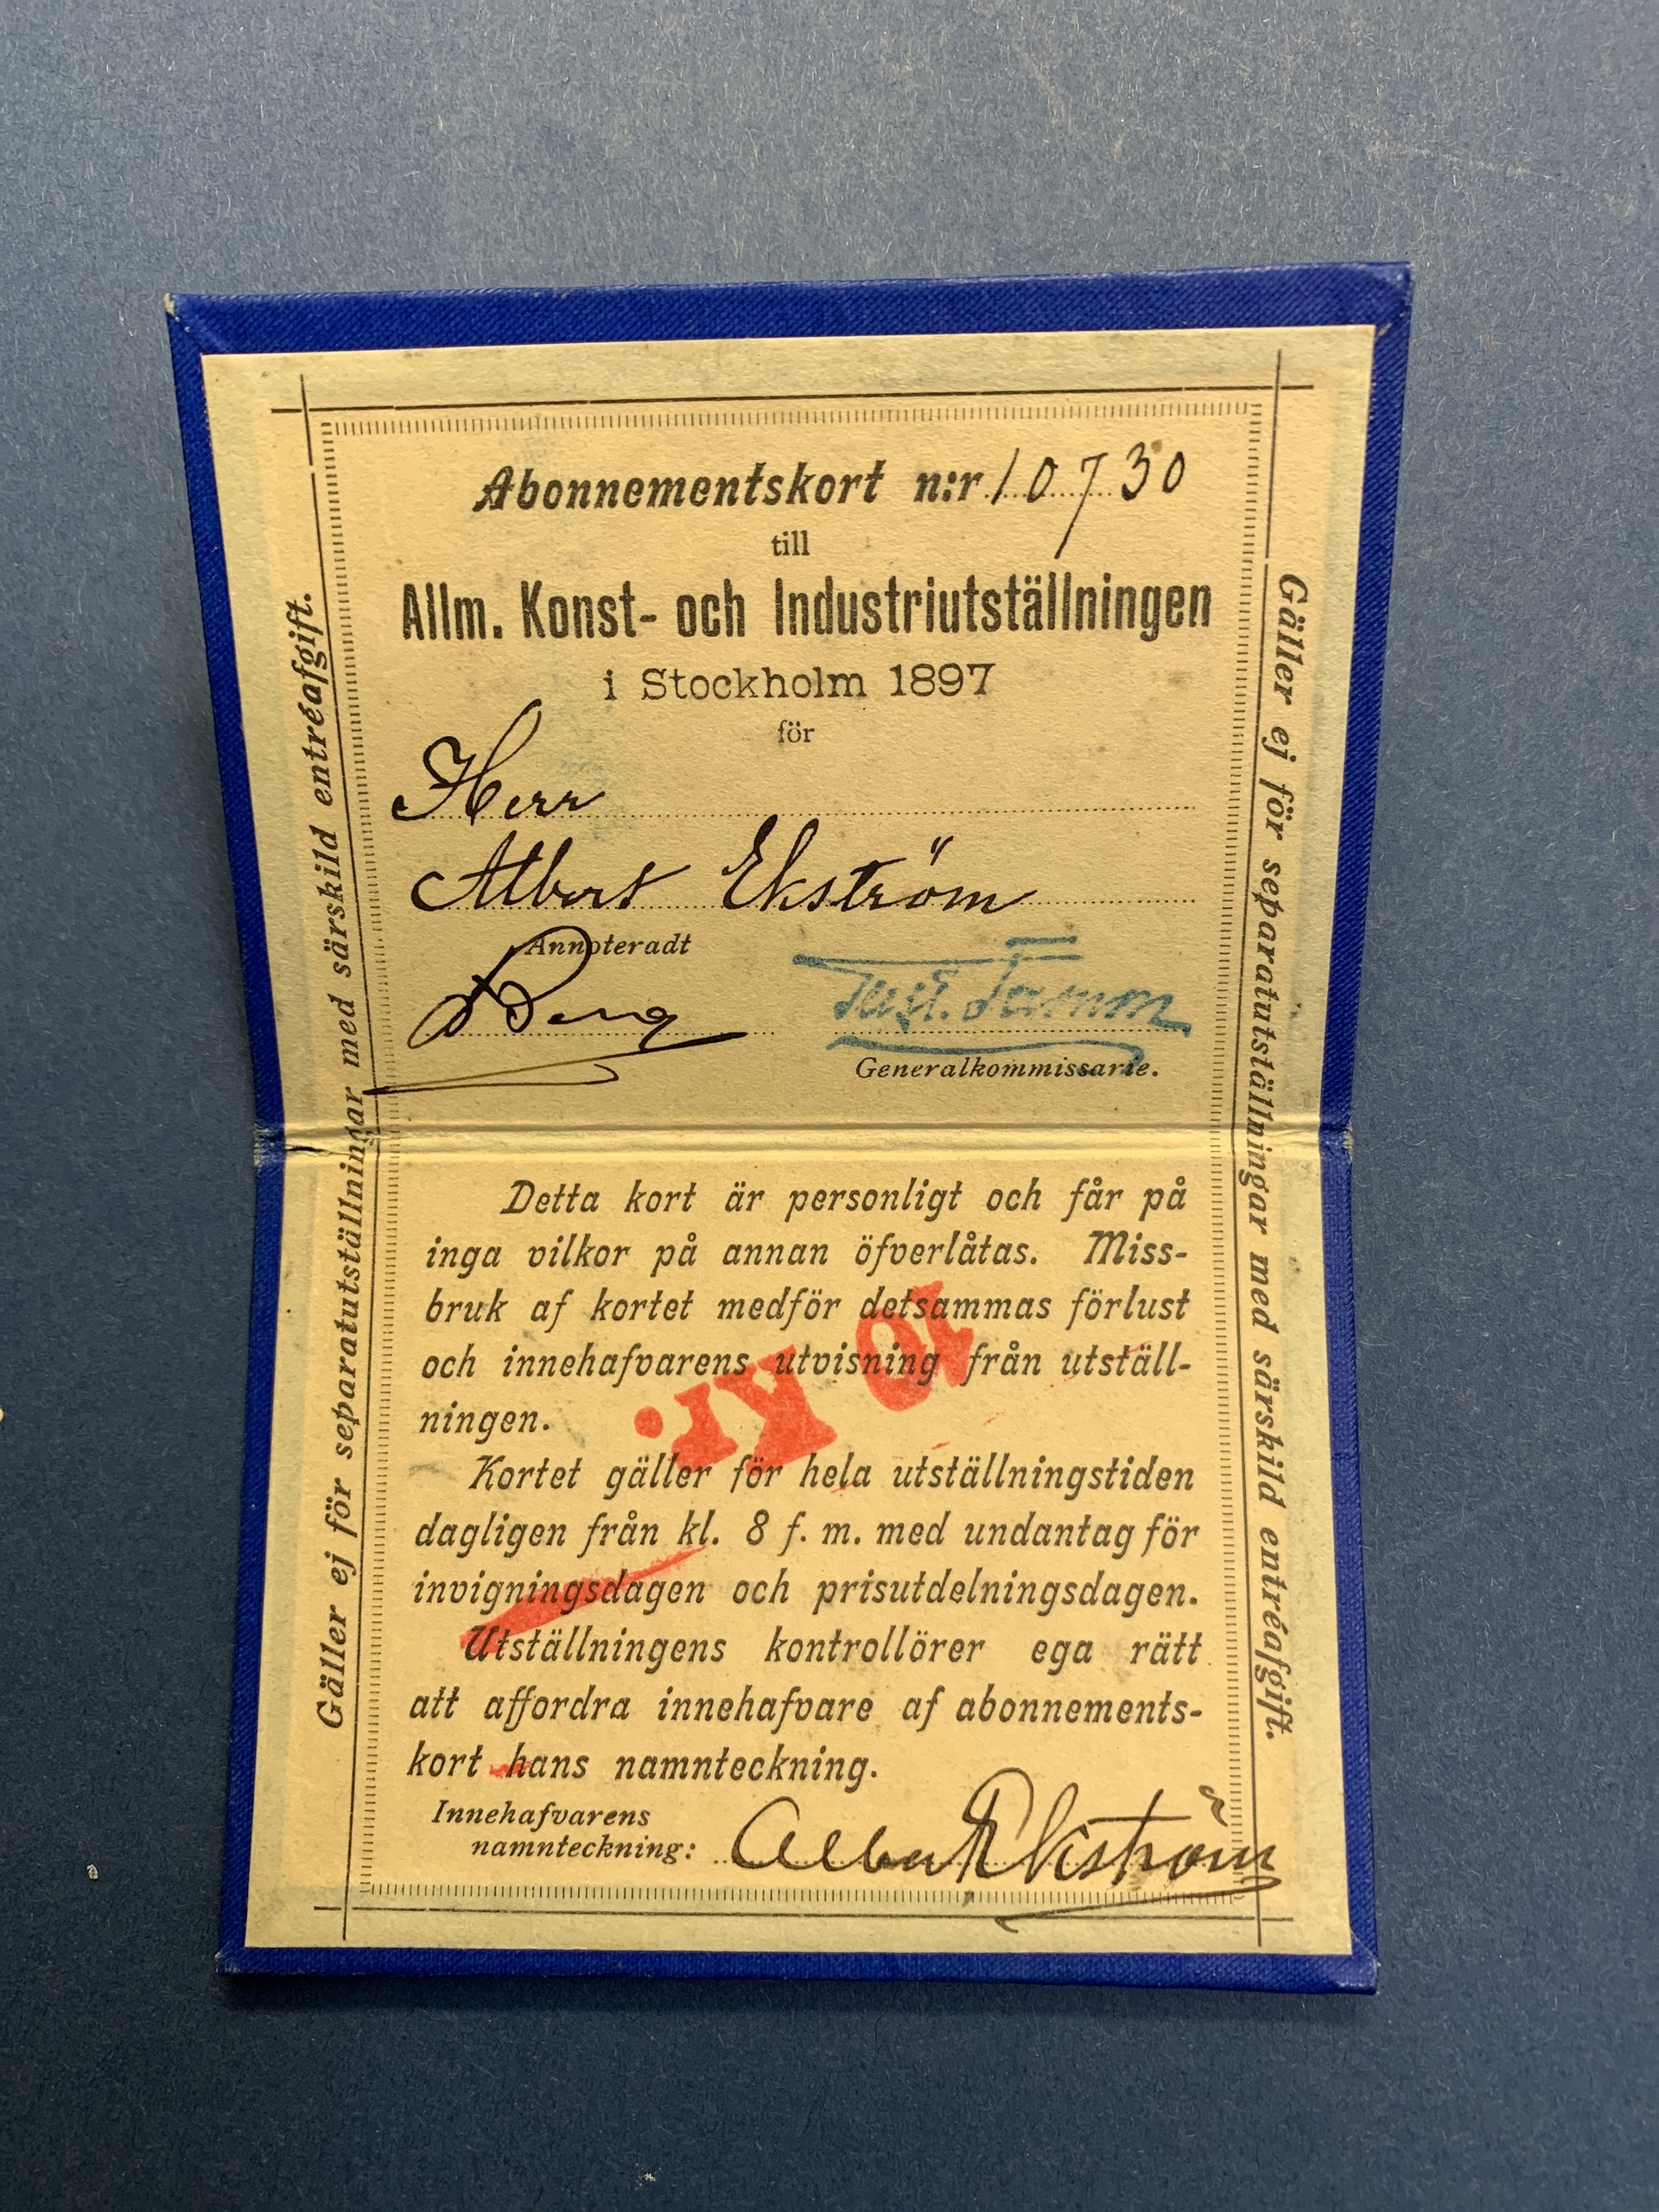 Abonnementskort n:r 10730
till
Allm. Konst- och Industriutställningen
i Stockholm 1897
för
Herr
Albert Ekström
Annoteradt
Berg
Gust. Tamm
Generalkommissarie.
Detta kort är personligt och får på
inga vilkor på annan öfverlåtas. Miss-
bruk af kortet medför detsammas förlust
och innehafvarens utvisning från utställ-
ningen.
10 Kr.
Kortet gäller för hela utställningstiden
dagligen från kl. 8 f. m. med undantag för
invigningsdagen och prisutdelningsdagen.
Utställningens kontrollörer ega rätt
att affordra innehafvare af abonnements-
kort hans namnteckning.
Innehafvarens
namnteckning: Albert Ekström
Gäller ej för separatutställningar med särskild entréafgift.
Gäller ej för separatutställningar med särskild entréafgift.